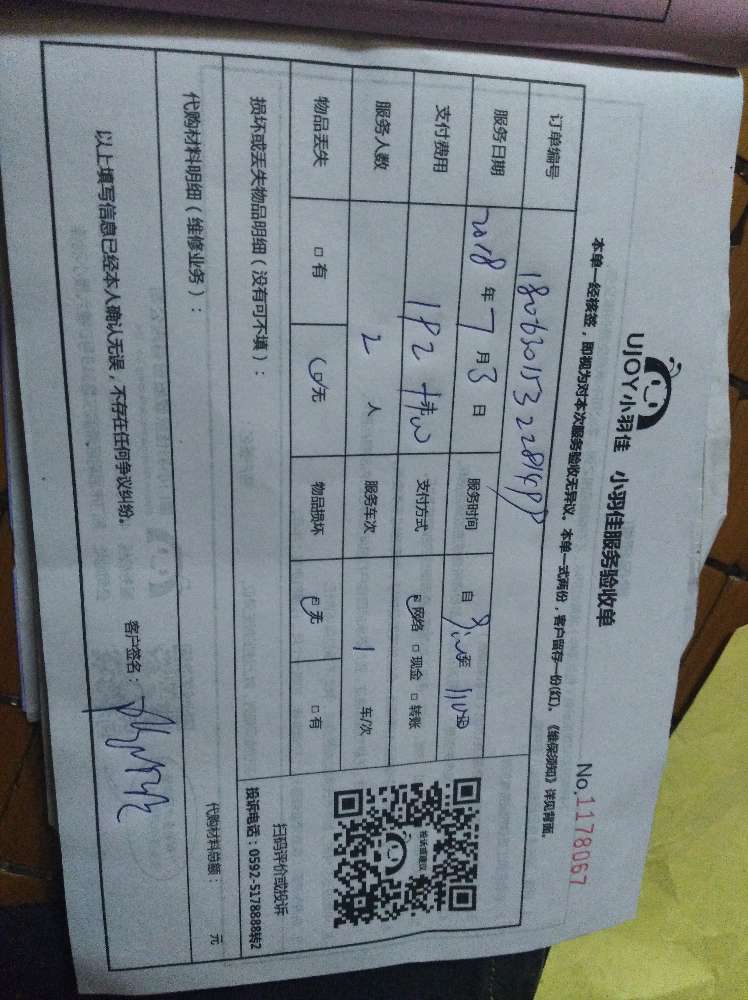 UJOY小羽佳 小羽佳服务验收单
No.1178067
本单一经核签，即视为对本次服务验收无异议。本单一式两份，客户留存一份(红)。《维保须知》详见背面。
订单编号
服务日期 2018 年 7 月 3 日 服务时间 自 至
支付费用 182 元 支付方式 网络 □ 现金 □ 转账
服务人数 2 人 服务车次 1 车/次
物品丢失 □ 有 无 物品损坏 无 □ 有
投诉或建议
扫码评价或投诉
投诉电话：0592-5178888转2
损坏或丢失物品明细（没有可不填）：
代购材料明细（维修业务）：
代购材料总额： 元
以上填写信息已经本人确认无误，不存在任何争议纠纷。 客户签名：